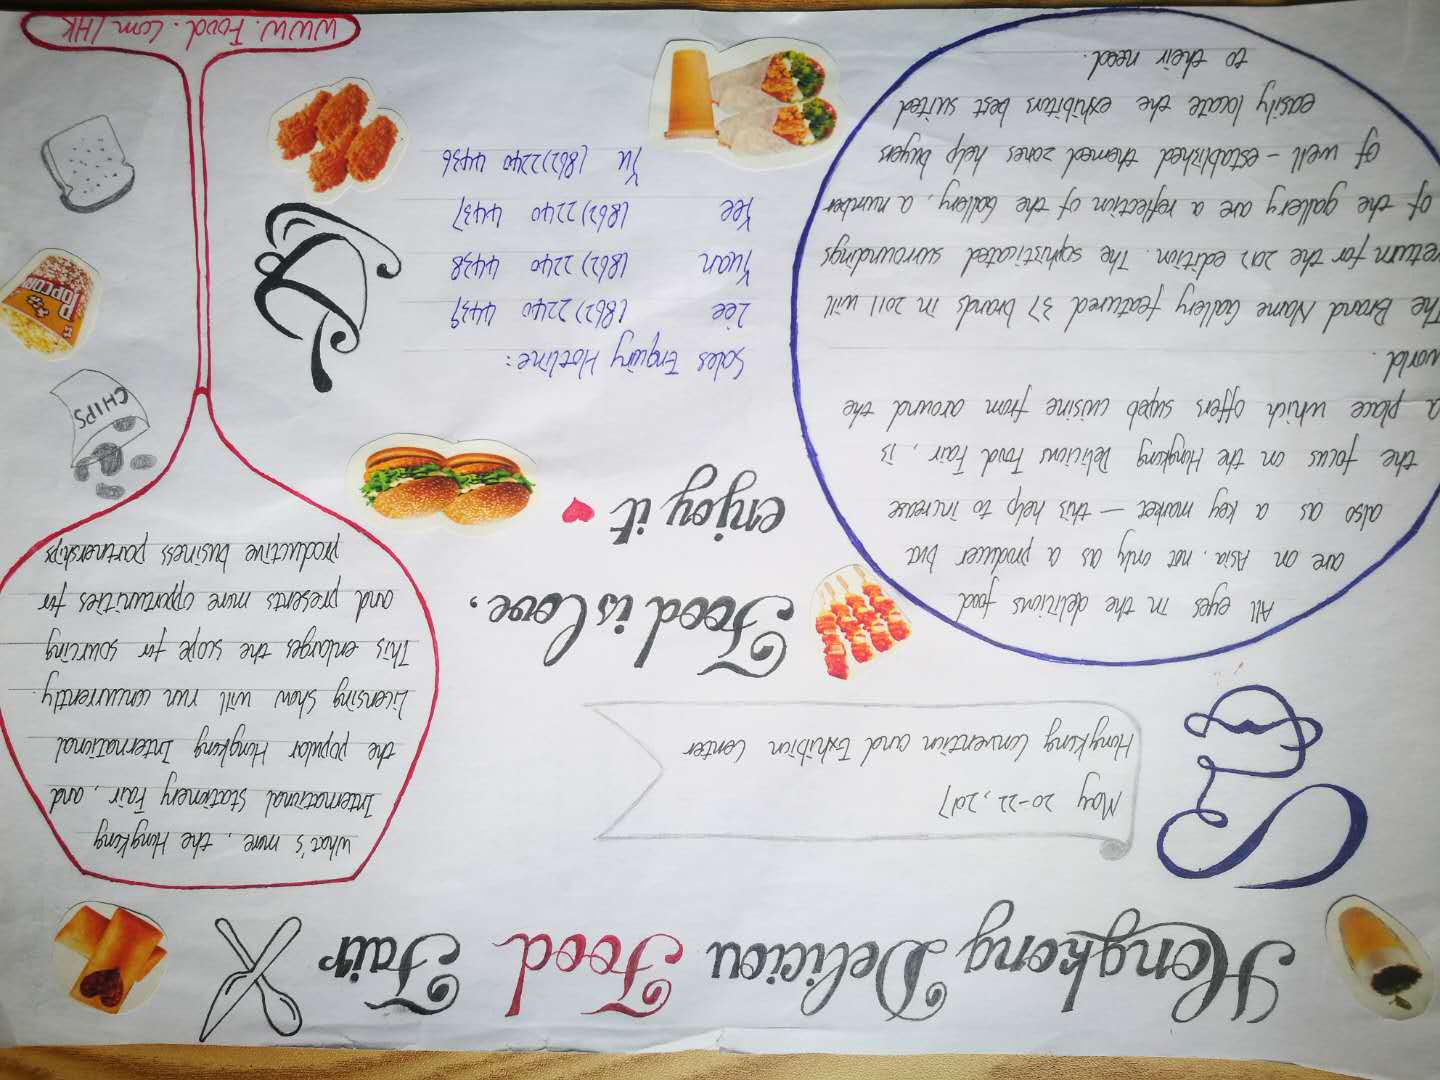 Hongkong Deliciou Food Fair
May 20-22, 2017
Hongkong Convention and Exhibition Center
Food is love.
enjoy it
All eyes in the delicious food
are on Asia. not only as a producer but
also as a key market - this help to increase
the focus on the Hongkong Delicious Food Fair, is
a place which offers supeb cuisine from around the
world.
The Brand Name Gallery featured 37 brands in 2011 will
return for the 2012 edition. The sophisticated surroundings
of the gallery are a reflection of the Gallery, a number
of well-established themed zones help buyers
easily locate the exhibitors best suited
to their need.
Sales Enquiry Hotline:
Lee (862)2240 4439
Yuan (862)2240 4438
Yee (862)2240 4437
Yu (862)2240 4436
What's more, the Hongkong
International Stationery Fair, and
the popular Hongkong International
Licensing Show will run concurrently.
This enlarges the scope for sourcing
and presents more opportunities for
productive business partnerships
CHIPS
POPCORN
www.Food.com/HK